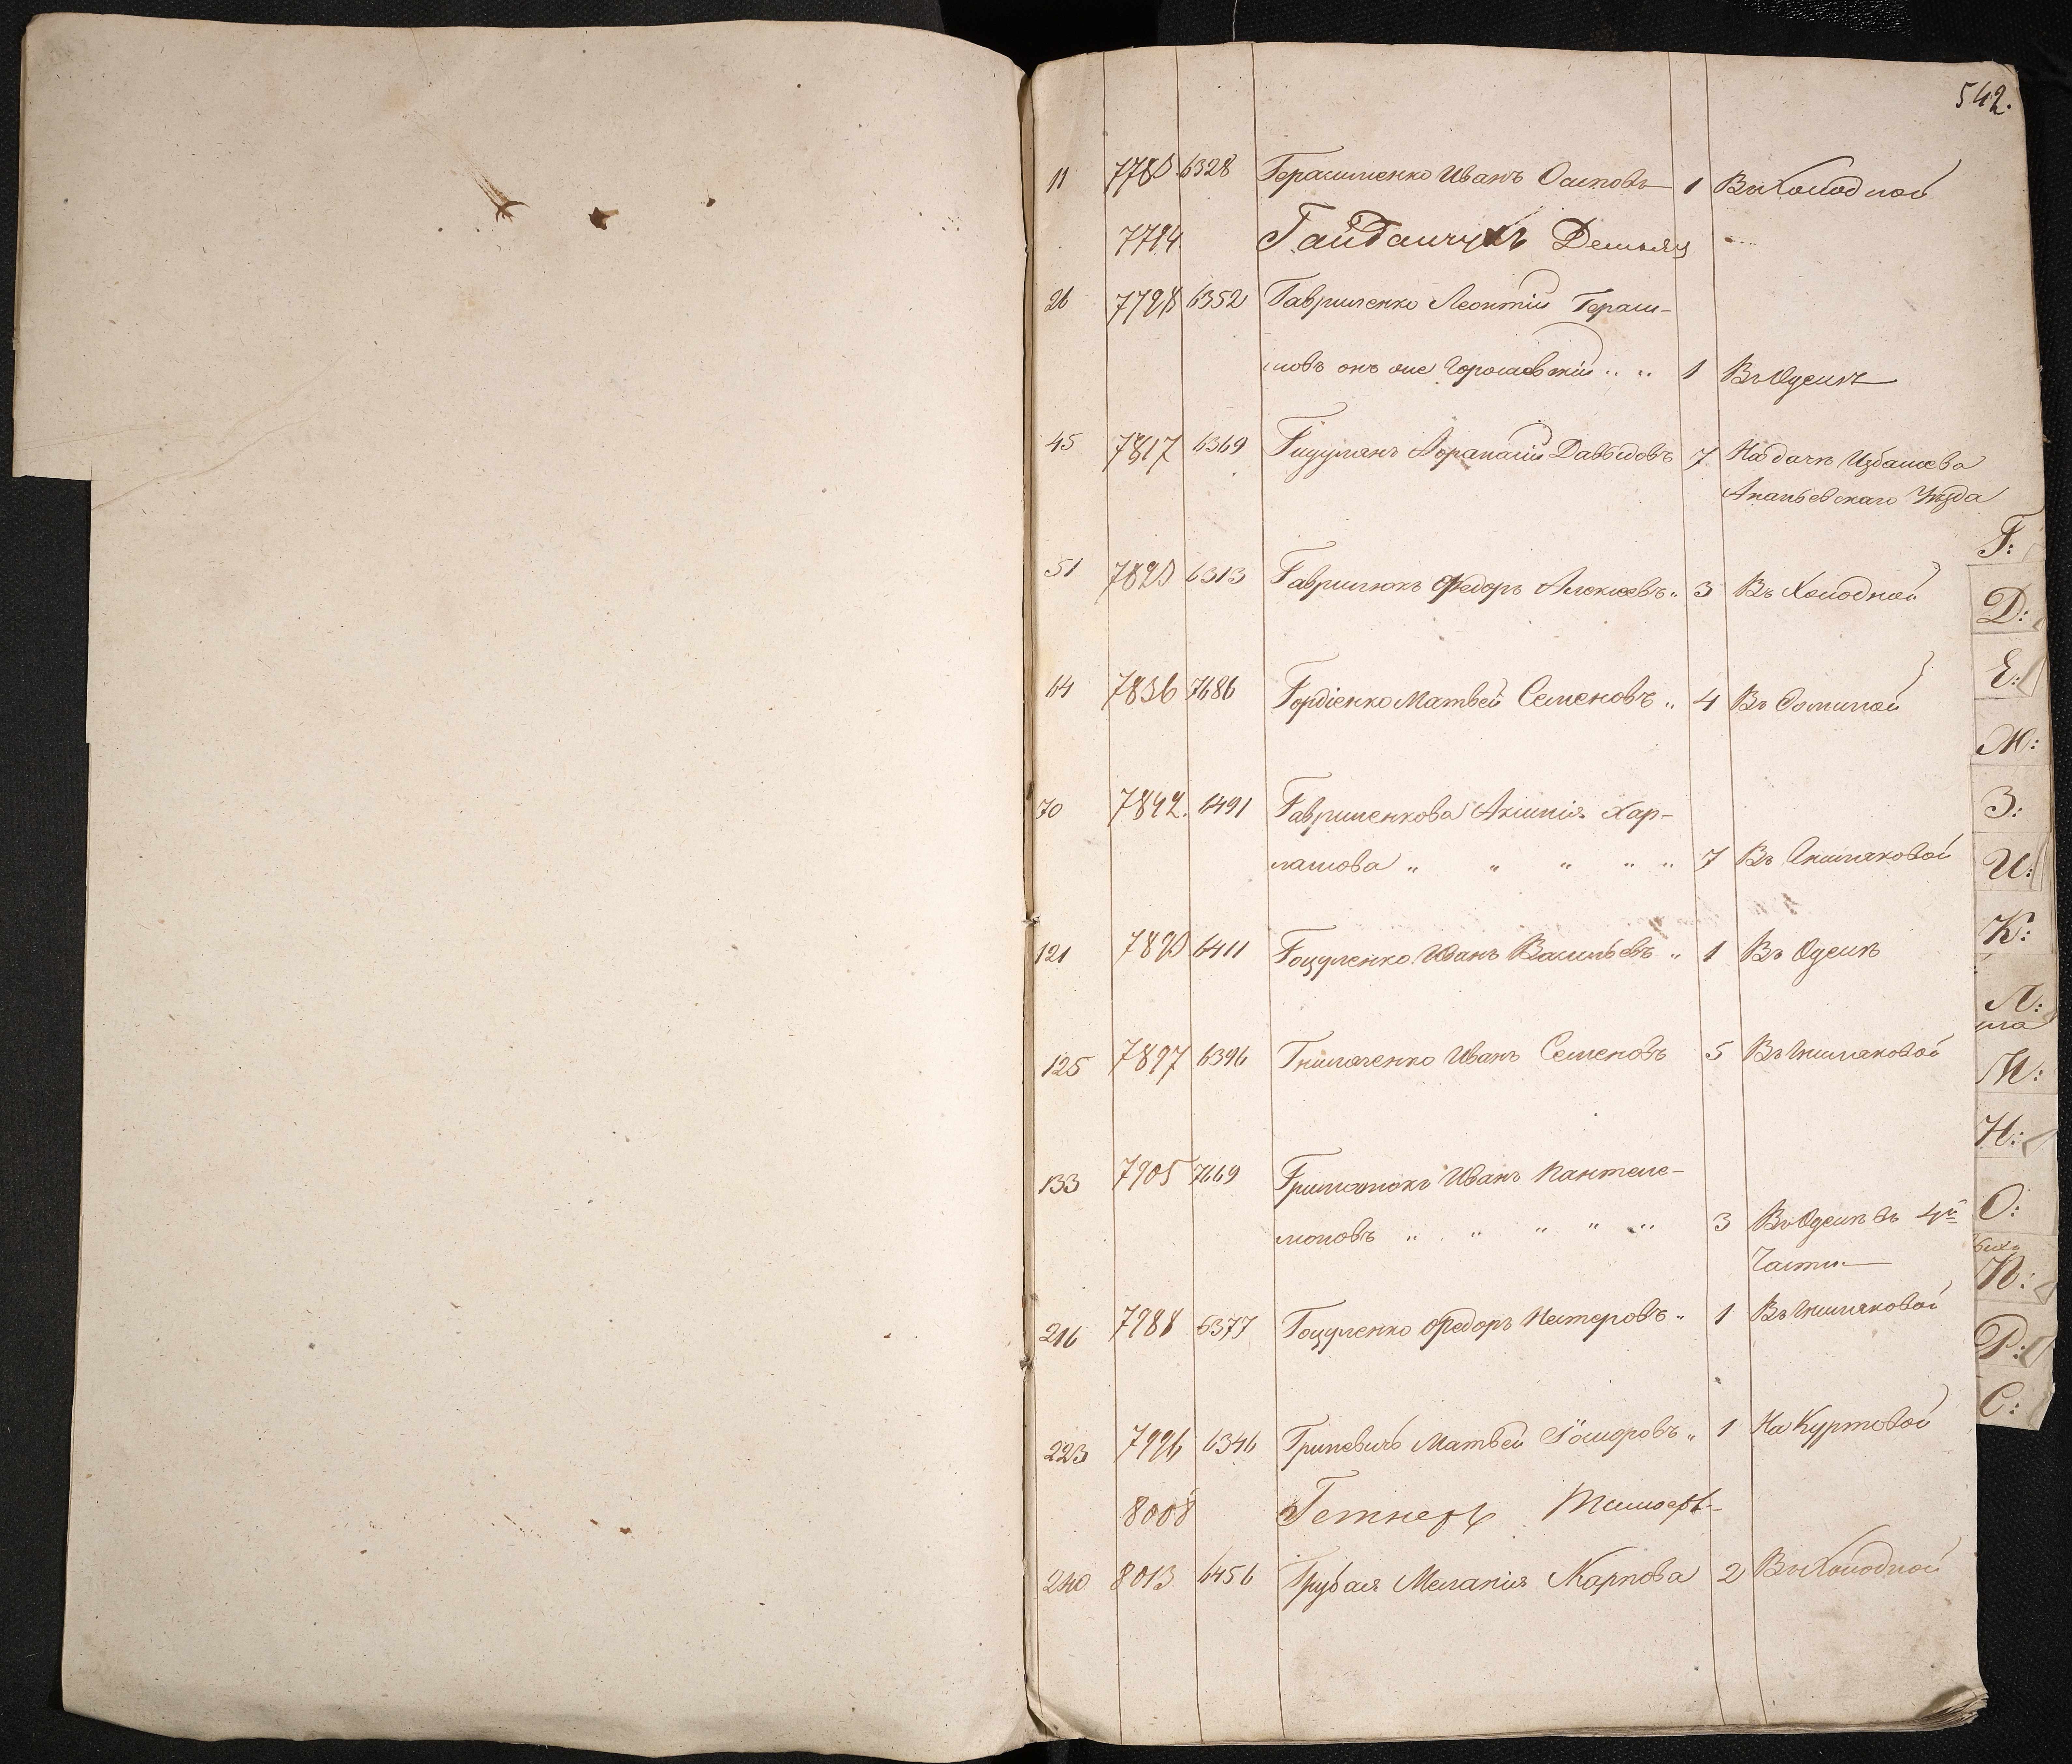 542.
11 7780 6328 Герасименко Иванъ Осиповъ 1 Въ Холодной
7794 Гайданчукъ Демьянъ
26 7798 6352 Гавриленко Леонтій Гераси-
мовъ онъ же 1 Въ Одесѣ
45 7817 6369 Гицулянъ Афанасій Давыдовъ 7 На дачѣ Избашева
Ананьевскаго Уѣзда
Г:
51 6313 Гаврилюкъ Федоръ Алексѣевъ „ 3 Въ Холодной
Д:
Е:
64 7836 7686 Гордіенко Матвей Семеновъ „ 4 Въ
Ж:
70 7842. 6491 Гавриленкова Хар-
З:
лампова „ „ „ „ „ 7 Въ Гниляковой
И:
К:
121 6411 Гоцуленко Иванъ Васильевъ „ 1 Въ Одесѣ
Л:
125 7897 6396 Гнилоченко Иванъ Семеновъ 5 Въ Гниляковой
М:
Н:
133 7905 7669 Иванъ Пантеле-
О:
моновъ „ „ „ „ „ 3 Въ Одесѣ въ 4й
Части
П:
216 7988 6377 Гоцуленко Федоръ Нестеровъ „ 1 Въ Гниляковой
Р:
С:
223 7996 6346 Гриневичъ Матвей „ 1 На Куртовой
8008 Гетнеръ
240 8013 6456 Грубая Меланія Карпова 2 Въ Холодной